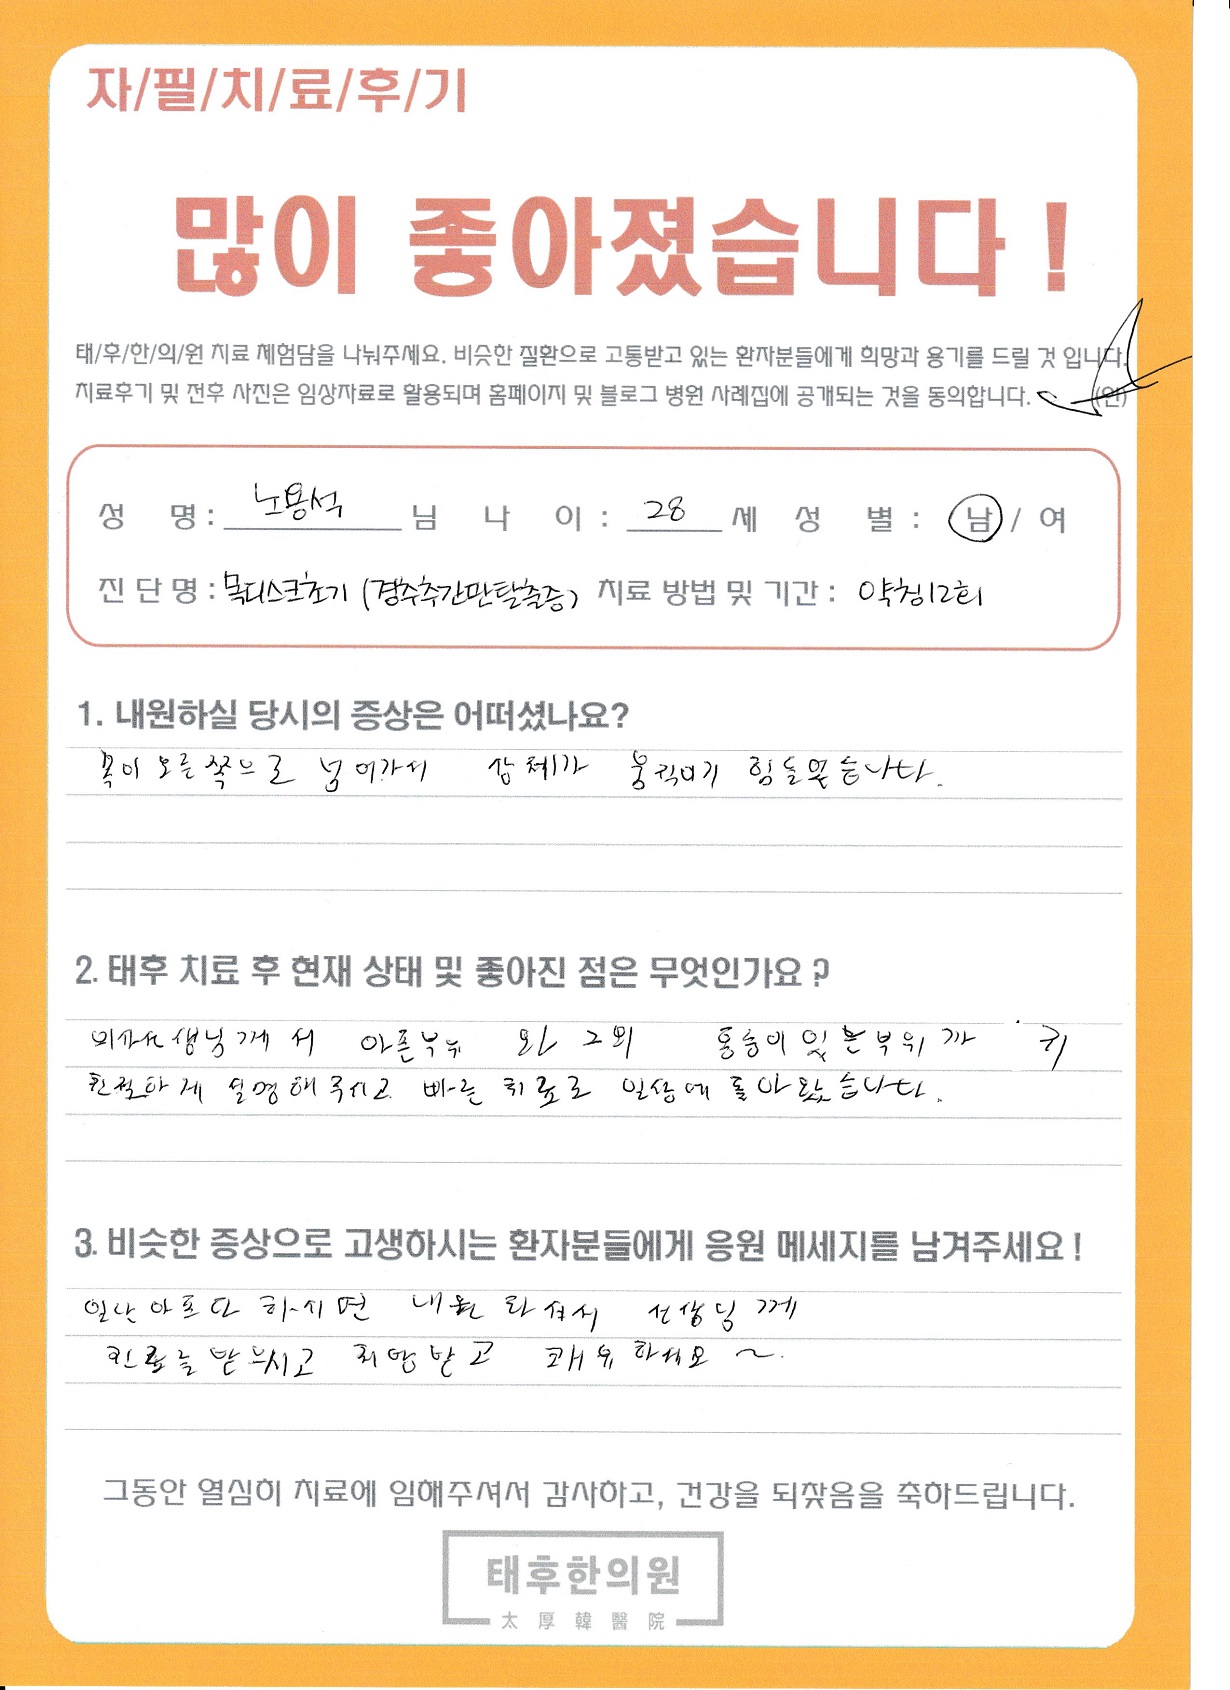 자/필/치/료/후/기
많이 좋아졌습니다 !
태/후/한/의/원 치료 체험담을 나눠주세요. 비슷한 질환으로 고통받고 있는 환자분들에게 희망과 용기를 드릴 것 입니다.
치료후기 및 전후 사진은 임상자료로 활용되며 홈페이지 및 블로그 병원 사례집에 공개되는 것을 동의합니다. (인)
성 명 : 노용석 님 나 이 : 28 세 성 별 : 남 / 여
진 단 명 : 목디스크초기 (경추추간판탈출증) 치료 방법 및 기간 : 약침12회
1. 내원하실 당시의 증상은 어떠셨나요?
목이 오른쪽으로 넘어가서 상체가 움직이기 힘들었습니다.
2. 태후 치료 후 현재 상태 및 좋아진 점은 무엇인가요 ?
의사선생님께서 아픈부위 와 그외 통증이 있는부위 까지
친절하게 설명해주시고 빠른 치료로 일상에 돌아왔습니다.
3. 비슷한 증상으로 고생하시는 환자분들에게 응원 메세지를 남겨주세요 !
일단 아프다 하시면 내원 하셔서 선생님께
진료를 받으시고 희망받고 쾌유하세요 ~.
그동안 열심히 치료에 임해주셔서 감사하고, 건강을 되찾음을 축하드립니다.
태후한의원
太厚韓醫院